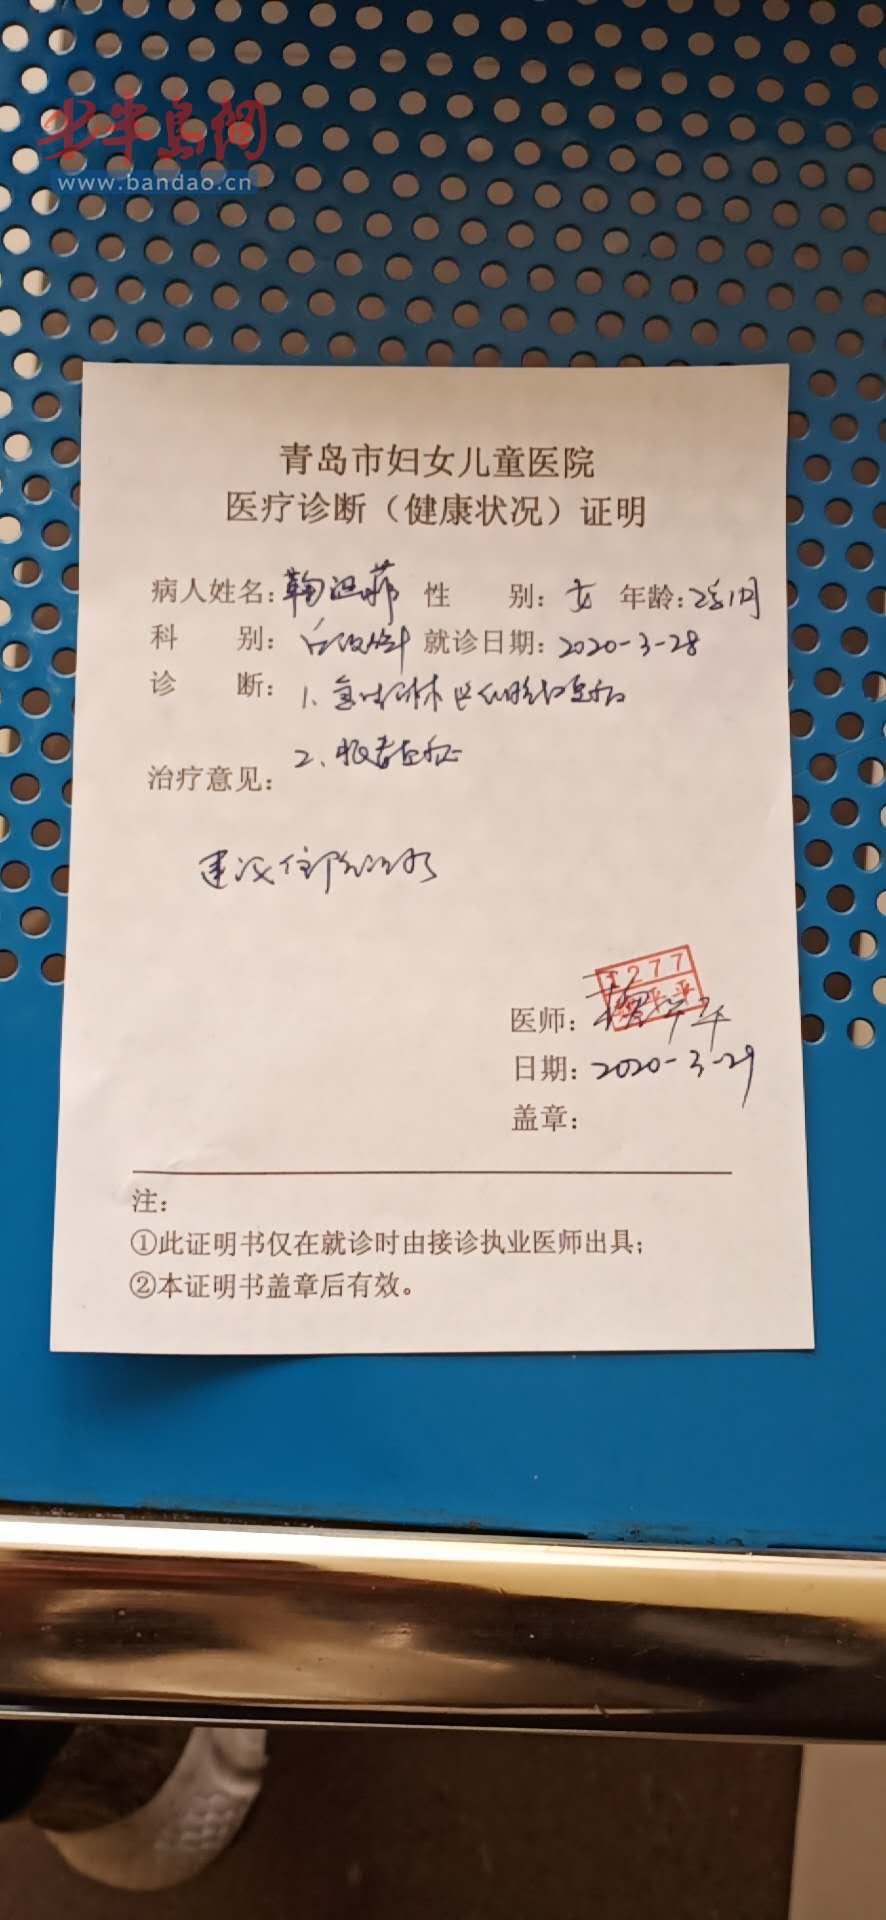 半岛网
www.bandao.cn
青岛市妇女儿童医院
医疗诊断（健康状况）证明
病人姓名：鞠 性 别：女 年龄：2岁1月
科 别： 就诊日期：2020-3-28
诊 断：1、急性淋巴细胞白血病
2、脓毒血症
治疗意见：
建议住院治疗
1277
医师：平平
日期：2020-3-29
盖章：
注：
①此证明书仅在就诊时由接诊执业医师出具；
②本证明书盖章后有效。